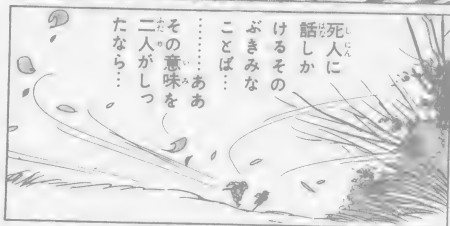 死人に
話しか
けるその
ぶきみな
ことば…
………ああ
その意味を
二人がしっ
たなら…